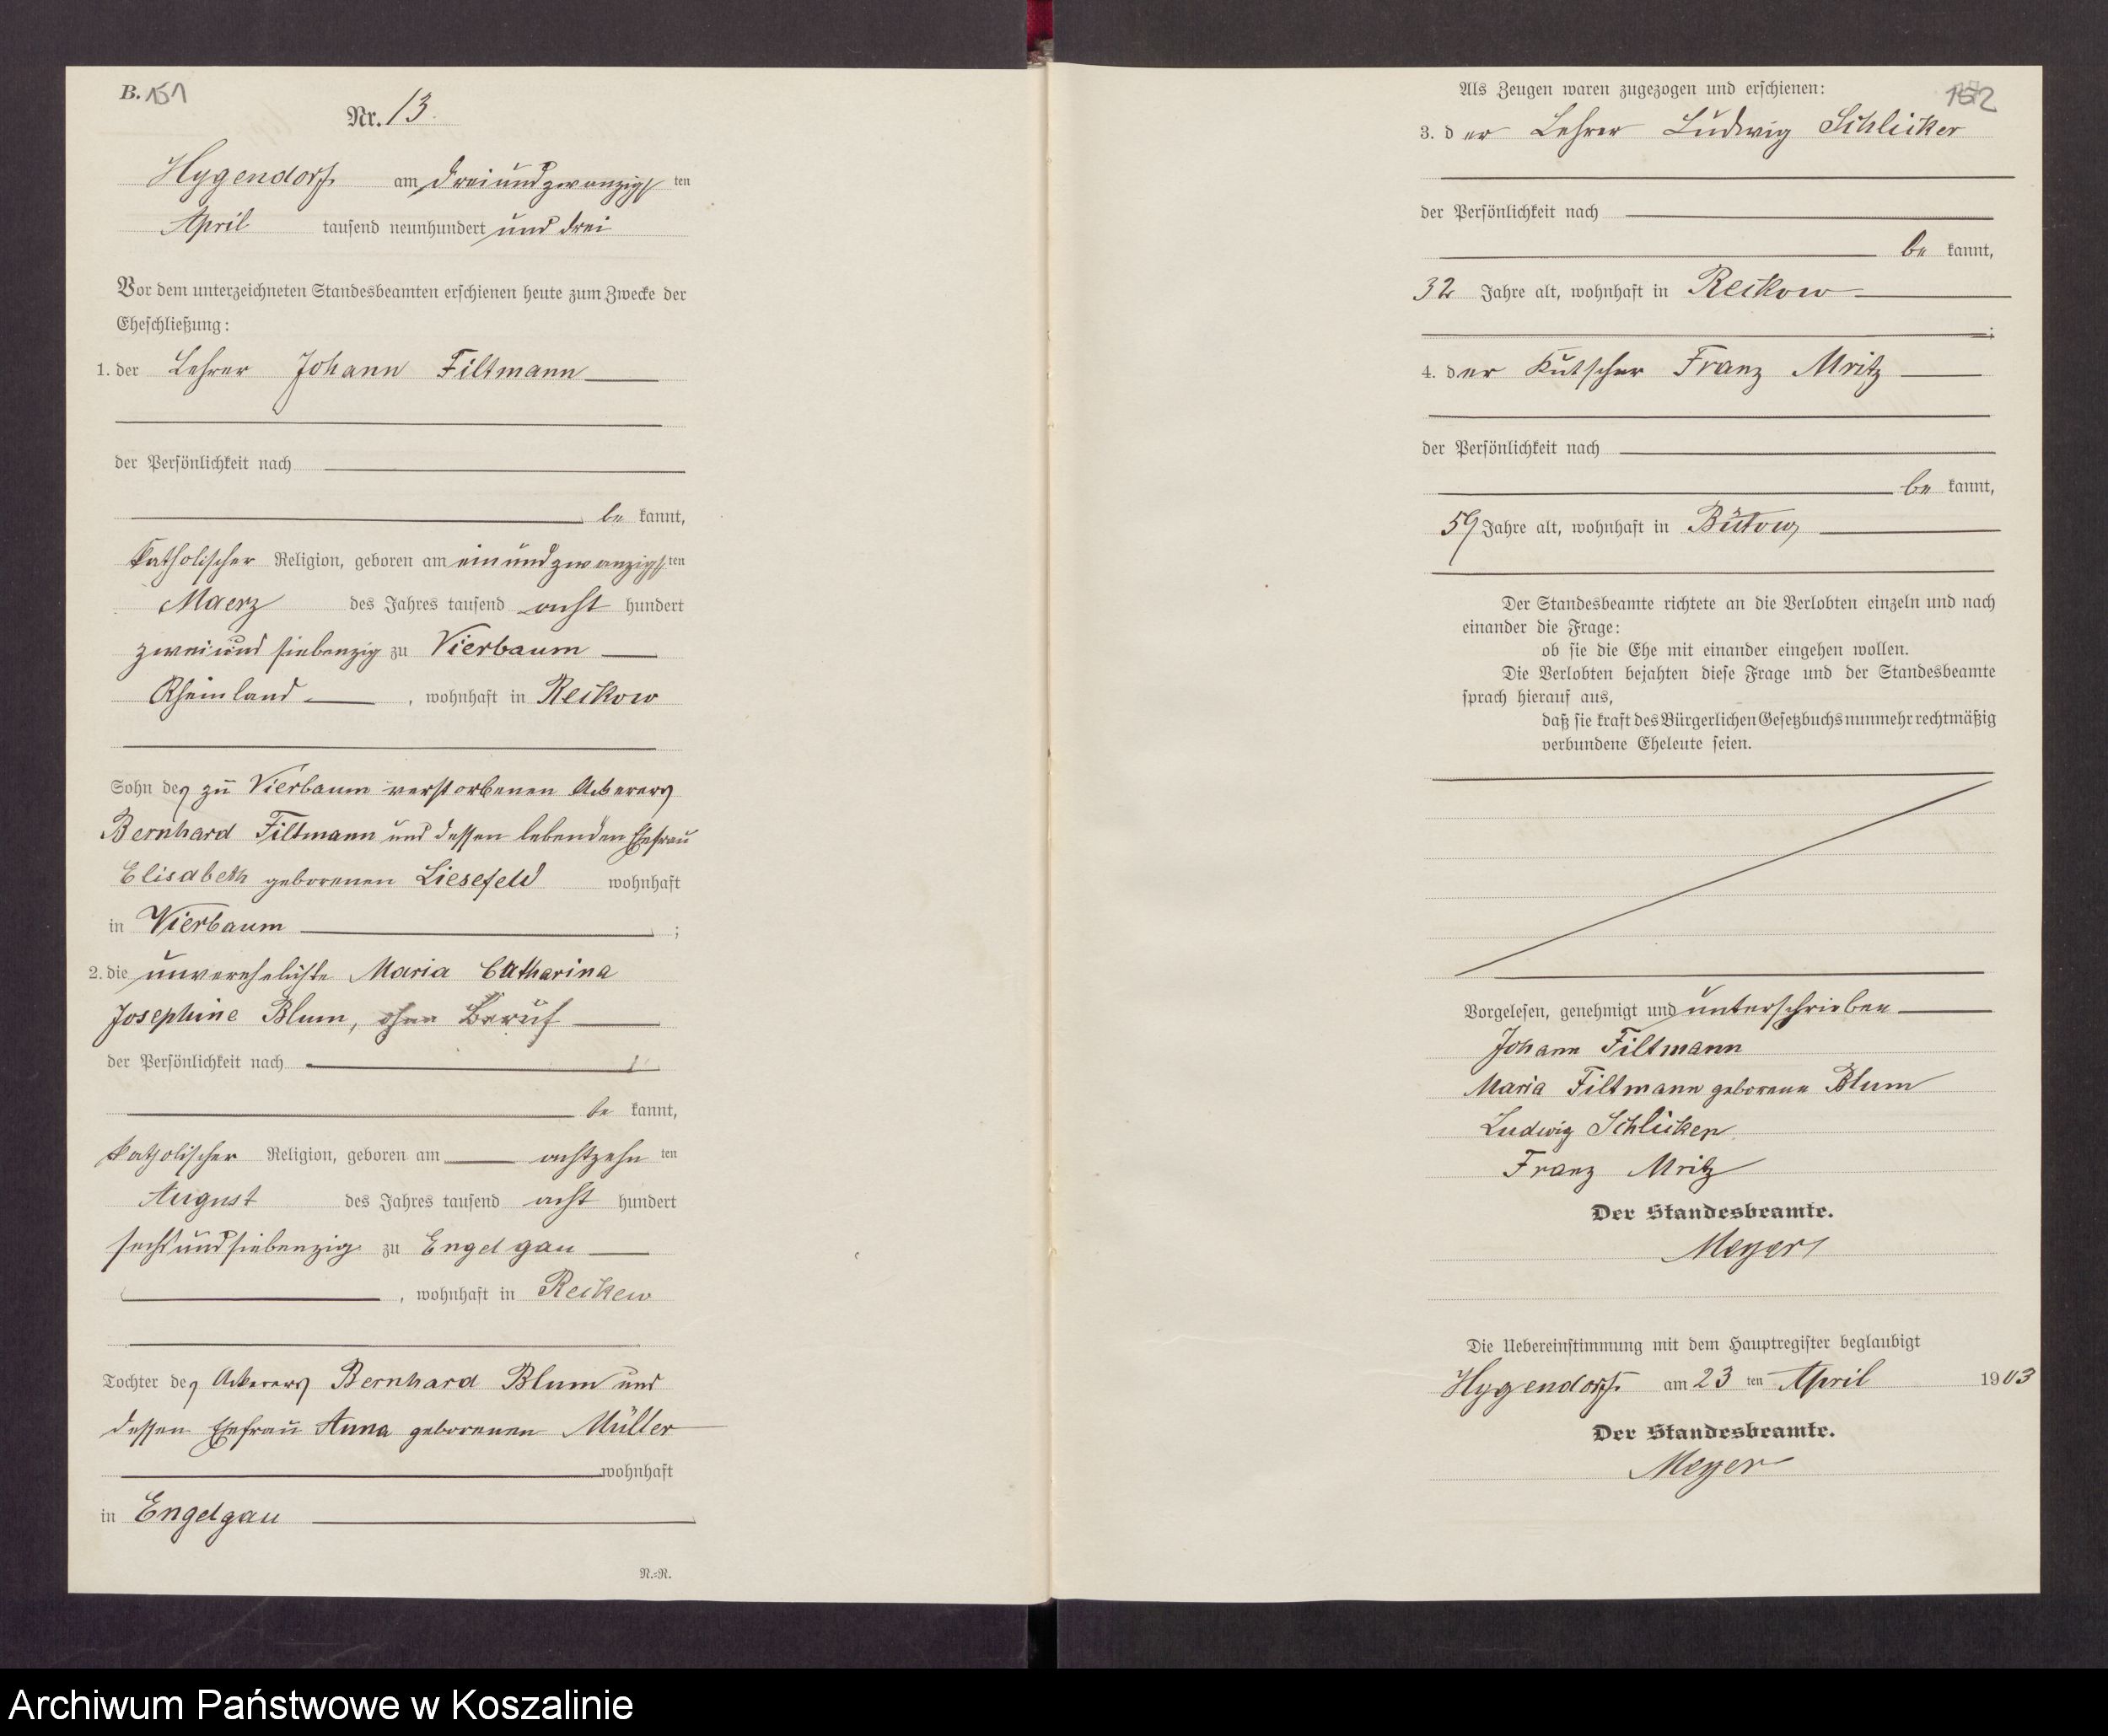 B. 151
Nr. 13.
Hygendorf am dreiundzwanzigsten
April tausend neunhundert und drei
Vor dem unterzeichneten Standesbeamten erschienen heute zum Zwecke der
Eheschließung:
1. der Lehrer Johann Filtmann
der Persönlichkeit nach
be kannt,
katholischer Religion, geboren am einundzwanzigsten
Maerz des Jahres tausend acht hundert
zweiund siebenzig zu Vierbaum
Rheinland, wohnhaft in Reckow
Sohn des zu Vierbaum verstorbenen Ackerers
Bernhard Filtmann und dessen lebenden Ehefrau
Elisabeth geborenen Liesefeld wohnhaft
in Vierbaum ;
2. die unverehelichte Maria Catharina
Josephine Blum, ohne Beruf
der Persönlichkeit nach
be kannt,
katholischer Religion, geboren am achtzehn ten
August des Jahres tausend acht hundert
sechsundsiebenzig zu Engelgau
, wohnhaft in Reckow
Tochter des Ackerers Bernhard Blum und
dessen Ehefrau Anna geborenen Müller
wohnhaft
in Engelgau
N.=R.
152
Als Zeugen waren zugezogen und erschienen:
3. der Lehrer Ludwig Schlicker
der Persönlichkeit nach
be kannt,
32 Jahre alt, wohnhaft in Reckow
;
4. der Kutscher Franz Mritz
der Persönlichkeit nach
be kannt,
59 Jahre alt, wohnhaft in Bütow
Der Standesbeamte richtete an die Verlobten einzeln und nach
einander die Frage:
ob sie die Ehe mit einander eingehen wollen.
Die Verlobten bejahten diese Frage und der Standesbeamte
sprach hierauf aus,
daß sie kraft des Bürgerlichen Gesetzbuchs nunmehr rechtmäßig
verbundene Eheleute seien.
Vorgelesen, genehmigt und unterschrieben
Johann Filtmann
Maria Filtmann geborene Blum
Ludwig Schlicker
Franz Mritz
Der Standesbeamte.
Meyer
Die Uebereinstimmung mit dem Hauptregister beglaubigt
Hygendorf am 23 ten April 1903
Der Standesbeamte.
Meyer
Archiwum Państwowe w Koszalinie